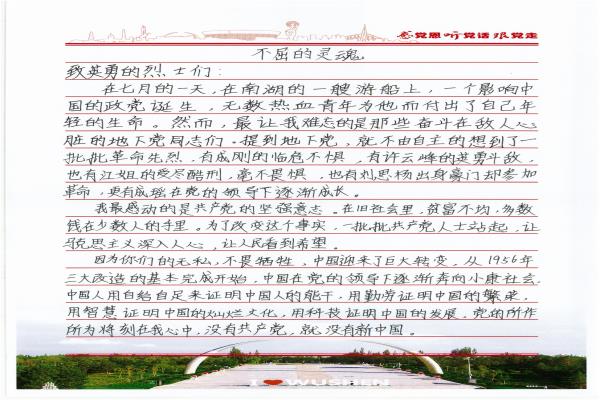 感党恩 听党话 跟党走
不屈的灵魂
致英勇的烈士们:
在七月的一天,在南湖的一艘游船上,一个影响中
国的政党诞生,无数热血青年为他而付出了自己年
轻的生命。然而,最让我难忘的是那些奋斗在敌人心
脏的地下党同志们。提到地下党,就不由自主的想到了一
批批革命先烈,有成刚的临危不惧,有许云峰的英勇斗敌,
也有江姐的受尽酷刑,毫不畏惧,也有刘思杨出身豪门却参加
革命,更有成瑶在党的领导下逐渐成长。
我最感动的是共产党的坚强意志。在旧社会里,贫富不均,多数
钱在少数人的手里。为了改变这个事实,一批批共产党人士站起,让
马克思主义深入人心,让人民看到希望。
因为你们的无私,不畏牺牲,中国迎来了巨大转变,从1956年
三大改造的基本完成开始,中国在党的领导下逐渐奔向小康社会.
中国人用自给自足来证明中国人的能干,用勤劳证明中国的繁荣,
用智慧证明中国的灿烂文化,用科技证明中国的发展。党的所作
所为将刻在我心中,没有共产党,就没有新中国。
I WUSHEN